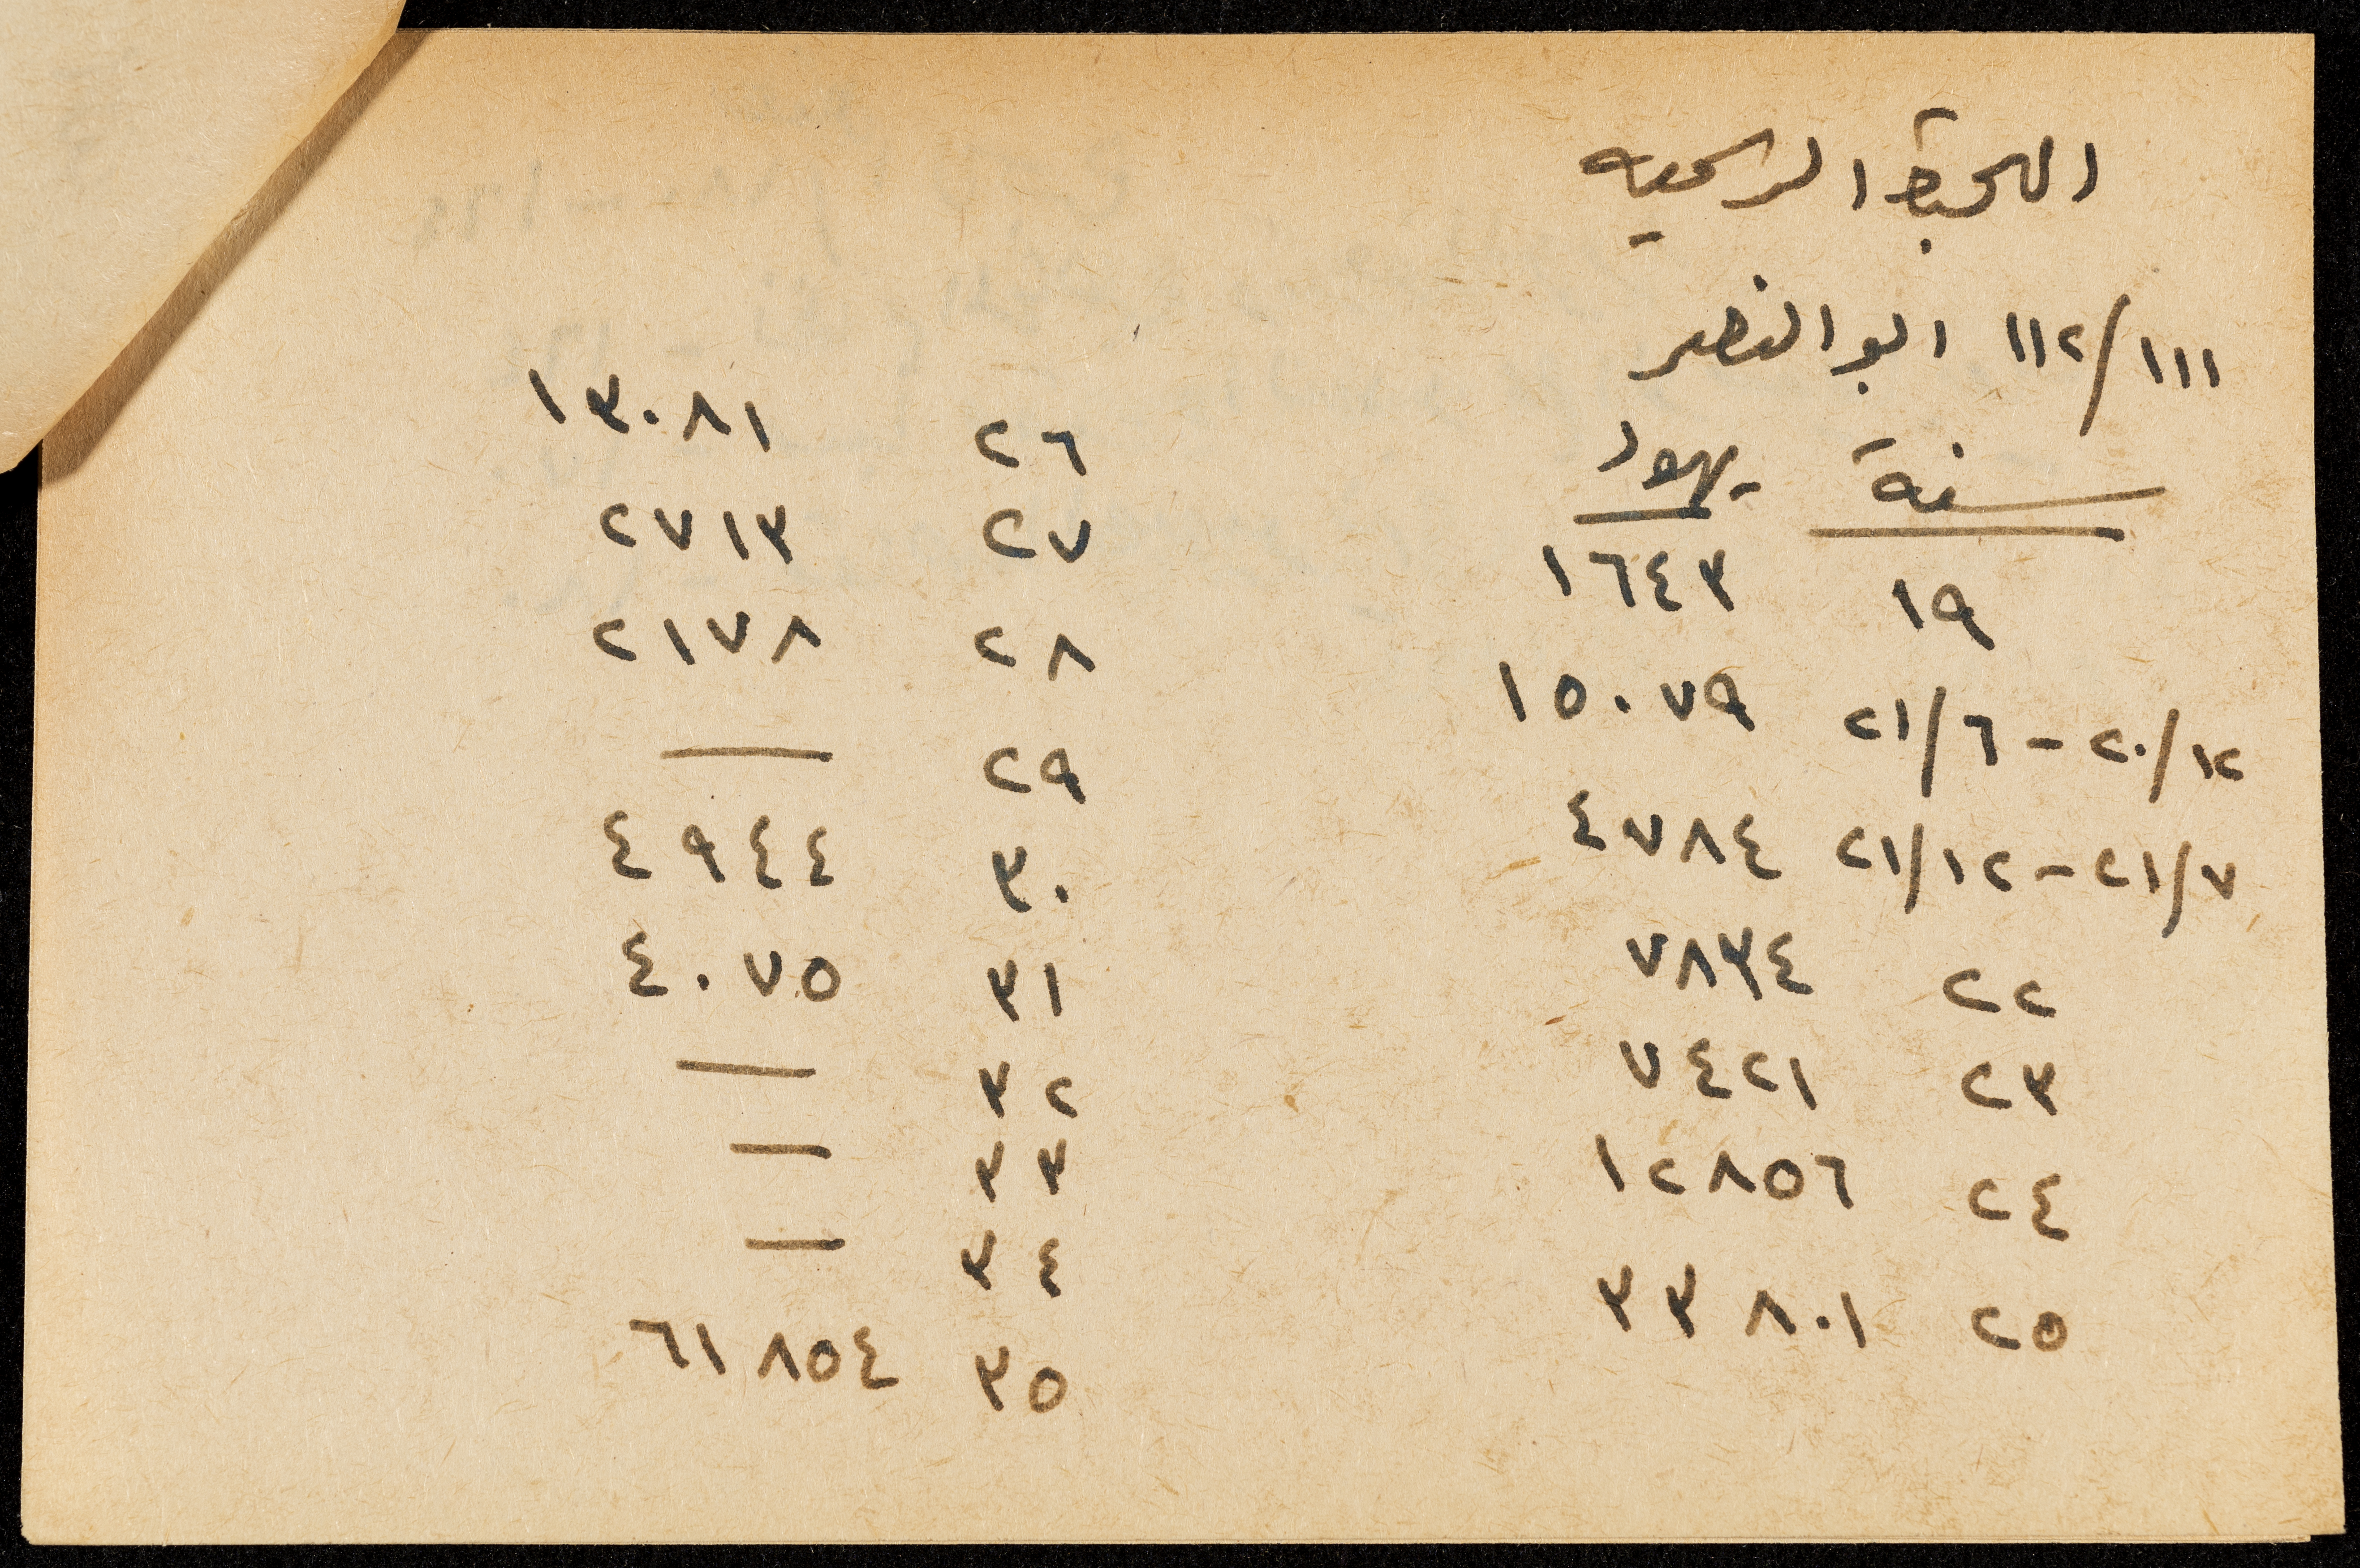 الهجرة الرسميه
١١١/١١٢ ابو النصر
سنة يهود
١٩ ١٦٤٣
١٢/٢٠ - ٦/٢١ ١٥٠٧٩
٧/٢١ - ١٢/٢١ ٤٧٨٤
٢٢ ٧٨٣٤
٢٣ ٧٤٢١
٢٤ ١٢٨٥٦
٢٥ ٣٣٨٠١
٢٦ ١٣٠٨١
٢٧ ٢٧١٣
٢٨ ٢١٧٨
٢٩ —
٣٠ ٤٩٤٤
٣١ ٤٠٧٥
٣٢ —
٣٣ —
٣٤ —
٣٥ ٦١٨٥٤